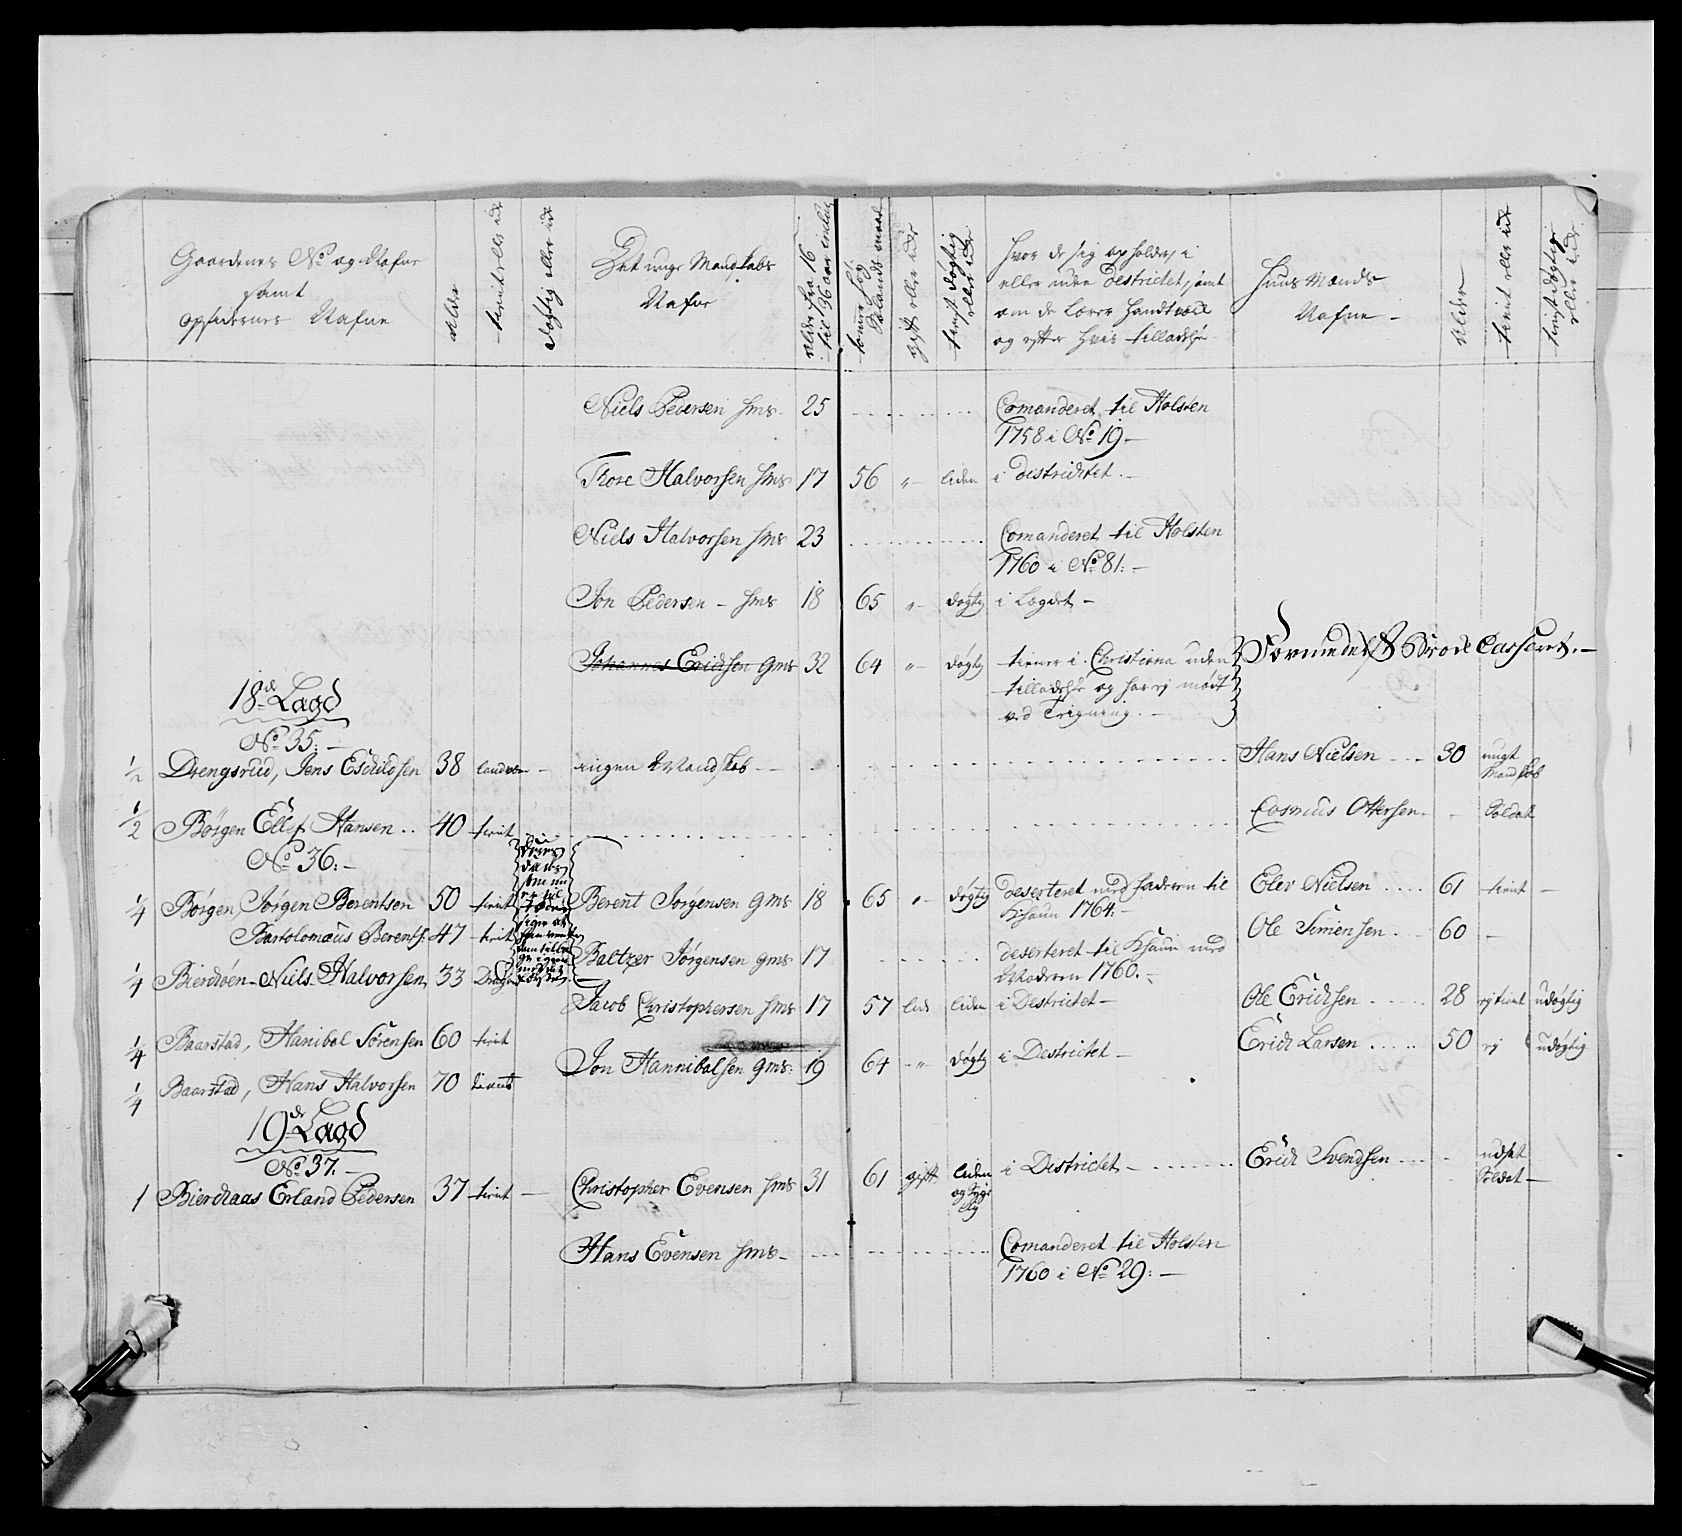 Gaardenes No og Nafne
samt
opsidernes Nafne
Alder
tient eller ei
døgtig eller ei
Det unge Mandskabs
Nafne
Alder fra 16
til 36 aar
gift eller ei
tienst døgtig
eller ei
Hvor de sig opholder, i
eller uden Destrictet, samt
om de Lærer Handtværk
og efter Hvis tilladelse
Huus Mænds
Nafne
Alder
tient eller ei
tienstdøgtig
eller ei
Niels Pedersen hms 25 Comanderet til Holsten
1758 i No 19.
Tore Halvorsen hms 17 56 " liden i districtet.
Niels Halvorsen hms 23 Comanderet til Holsten
1760 i No 81.
Jon Pedersen hms 18 65 " døgtig i Lægdet
Johannes Erichsen gms 32 64 " døgtig tiener i Christiana uden
tilladelse og har ej mødt
ved
Formedelst Brok Casseret.
18de Lægd
No 35.
1/2 Drengsrud, Jens Eschildsen 38 landværn ingen Mandskab Hans Nielsen 30 ungt
Mandskab
1/2 Børgen Ellef Hansen 40 tient Ottersen Soldat
No 36.
1/4 Børgen, Jørgen Berentsen 50 tient Berent Jørgensen gms 18 65 " døgtig deserteret med faderen til
1764. Elev Nielsen 61 tient
Bartolomæus Berents: 47 tient Ole Simensen 60
Baltzer Jørgensen gms 17 deserteret til med
Moderen 1760.
1/4 Bierchøen Niels Halvorsen 33 Dragon
Jacob Christophersen hms 17 57 lid liden i Destrictet Ole Erichsen 28 ej tient udøgtig
1/4 Baarstad, Hanibal Sørensen 60 tient Erich Larsen 50 ej udøgtig
Jon Hannibalsen gms: 19 64 " døgtig i Destrictet
1/4 Baarstad, Hans Halvorsen 70 tient
19de Lægd
No 37.
1 Bierchaas Erland Pedersen 37 tient Christopher Evensen hms 31 61 gift liden
og
i Districtet Erich Svendsen udsat
Soldat
Hans Evensen hms Comanderet til Holsten
1760 i No 29.